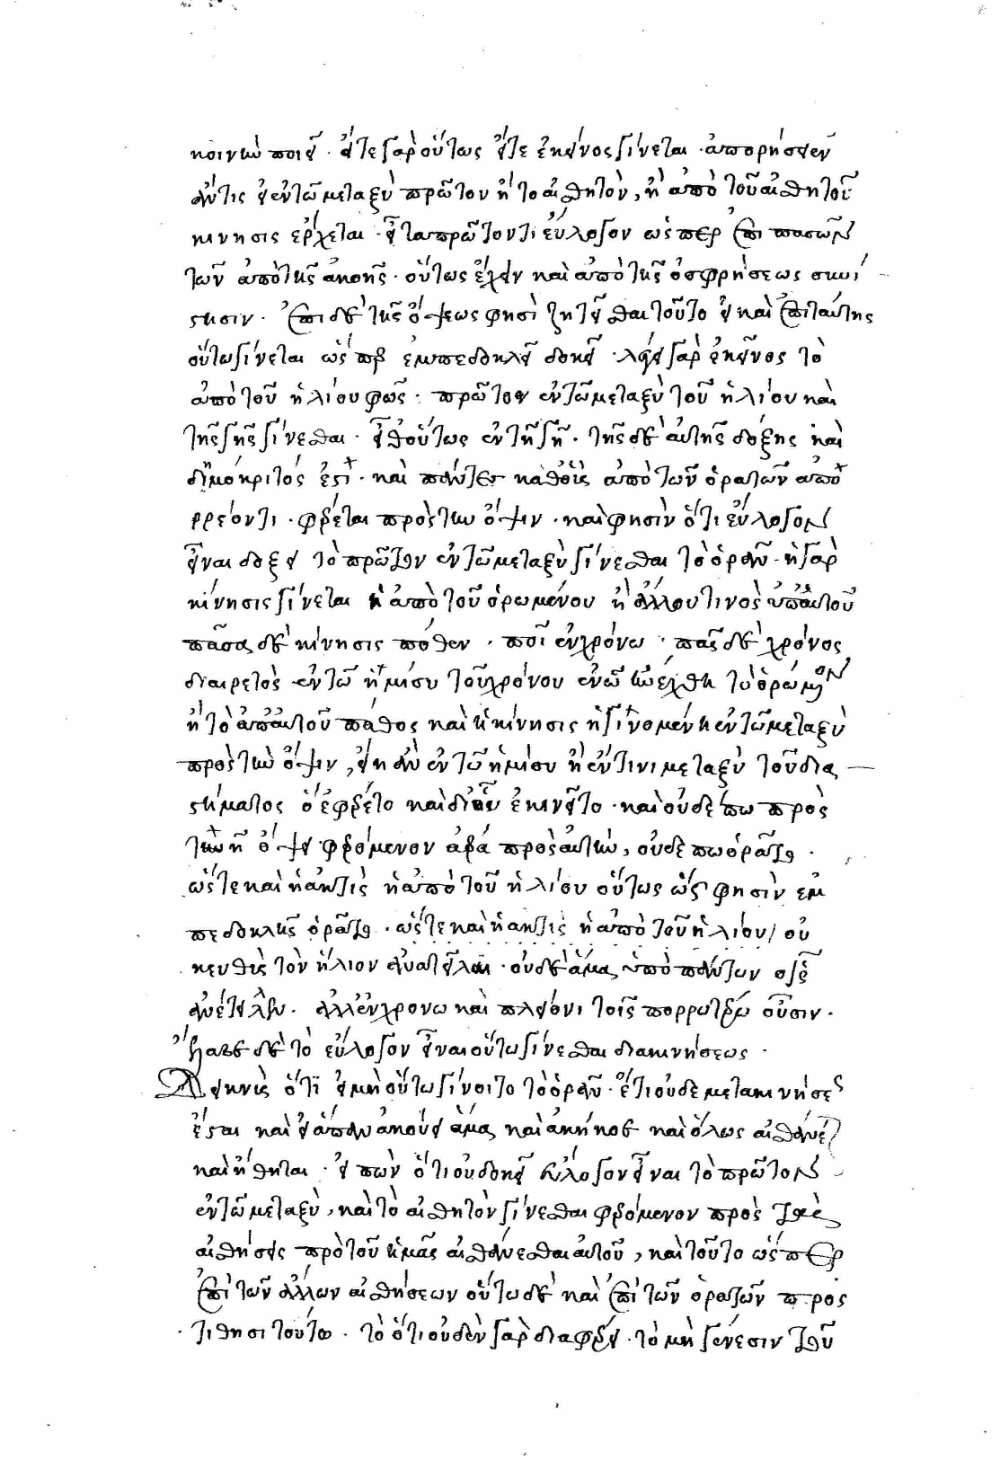 κοινὴν ποιεῖ · εἴτε γὰρ οὕτως εἴτε ἐκείνως γίνεται · ἀπορήσειεν
ἄν τις εἰ ἐν τῷ μεταξὺ πρῶτον ἢ τὸ αἰσθητὸν, ἢ ἀπὸ τοῦ αἰσθητοῦ
κίνησις ἔρχεται · εἶτα πρῶτόν τι εὔλογον ὥσπερ ἐπὶ πασῶν
τῶν ἀπὸ τῆς ἀκοῆς · οὕτως ἔχειν καὶ ἀπὸ τῆς ὀσφρήσεως συνί
στησιν · ἐπὶ δὲ τῆς ὄψεως φησὶ ζητεῖσθαι τοῦτο εἰ καὶ ἐπὶ ταύτης
οὕτω γίνεται ὥσπερ ἐμπεδοκλεῖ δοκεῖ · λέγει γὰρ ἐκεῖνος τὸ
ἀπὸ τοῦ ἡλίου φῶς · πρῶτον ἐν τῷ μεταξὺ τοῦ ἡλίου καὶ
τῆς γῆς γίνεσθαι · εἶθ' οὕτως ἐν τῇ γῇ · τῆς δὲ αὐτῆς δόξης καὶ
δημόκριτός ἐστι · καὶ πάντες καθ' οὓς ἀπὸ τῶν ὁρατῶν ἀπό
ρρέον τι · φέρεται πρὸς τὴν ὄψιν · καὶ φησὶν ὅτι εὔλογον
εἶναι δόξει τὸ πρῶτον ἐν τῷ μεταξὺ γίνεσθαι τὸ ὁρᾶν · ἡ γὰρ
κίνησις γίνεται ἢ ἀπὸ τοῦ ὁρωμένου ἢ ἄλλου τινὸς ὑπ' αὐτοῦ
πᾶσα δὲ κίνησις πόθεν · ποῖ ἐν χρόνω · πᾶς δὲ χρόνος
διαιρετὸς ἐν τῷ ἡμίσυ τοῦ χρόνου ἐν ᾧ ἠνέχθη τὸ ὁρώμενον
ἢ τὸ ἀπ' αὐτοῦ πάθος καὶ ἡ κίνησις ἡ γινομένη ἐν τῷ μεταξὺ
πρὸς τὴν ὄψιν, εἴη ἂν ἐν τῷ ἡμίσυ ἢ ἔν τινι μεταξὺ τοῦ δια
στήματος ὃ ἐφέρετο καὶ δι' οὗ ἐκινεῖτο · καὶ οὐδέπω πρὸς
τῇ ὄψει φερόμενον ἅμα πρὸς αὐτὴν, οὐδέπω ὁρᾶται ·
ὥστε καὶ ἡ ἀκτὶς ἡ ἀπὸ τοῦ ἡλίου οὕτως ὥς φησὶν ἐμ
πεδοκλῆς ὁρᾶται · ὥστε καὶ ἡ ἀκτὶς ἡ ἀπὸ τοῦ ἡλίου / οὐκ
εὐθὺς τὸν ἥλιον ἀνατεῖλαι · οὐδὲ ἅμα ὑπὸ πάντων
ἀλλ' ἐν χρόνω καὶ πλείονι τοῖς πορρωτέρω οὖσιν ·
ἔλαβε δὲ τὸ εὔλογον εἶναι οὕτω γίνεσθαι διὰ κινήσεως ·
Δείκνυς ὅτι εἰ μὴ οὕτω γίνοιτο τὸ ὁρᾶν · ἔτι οὐδὲ μετὰ κινήσεως
ἔσται καὶ εἰ ἅπαν ἀκούει ἅμα καὶ ἀκήκοε καὶ ὅλως αἰσθάνεται
καὶ ᾔσθηται · εἰπὼν ὅτι οὐ δοκεῖ εὔλογον εἶναι τὸ πρῶτον
ἐν τῷ μεταξὺ, καὶ τὸ αἰσθητὸν γίνεσθαι φερόμενον πρὸς τὰς
αἰσθήσεις πρὸ τοῦ ἡμᾶς αἰσθάνεσθαι αὐτοῦ, καὶ τοῦτο ὥσπερ
ἐπὶ τῶν ἄλλων αἰσθήσεων οὕτω δὲ καὶ ἐπὶ τῶν ὁρατῶν προσ
τίθησι τούτω · τὸ ὅτι οὐδὲν γὰρ διαφέρει · τὸ μὴ γένεσιν τοῦ